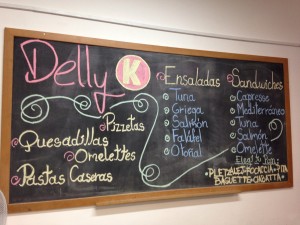 Delly K
Pizzetas
Quesadillas
Omelettes
Pastas Caseras
Ensaladas
Tuna
Griega
Salmón
Falafel
Otoñal
Sandwiches
Capresse
Mediterráneo
Tuna
Salmón
Omelette
Elegí tu Pan:
PLETZALE FOCACCIA PITA
BAGUETTE CHIABATTA